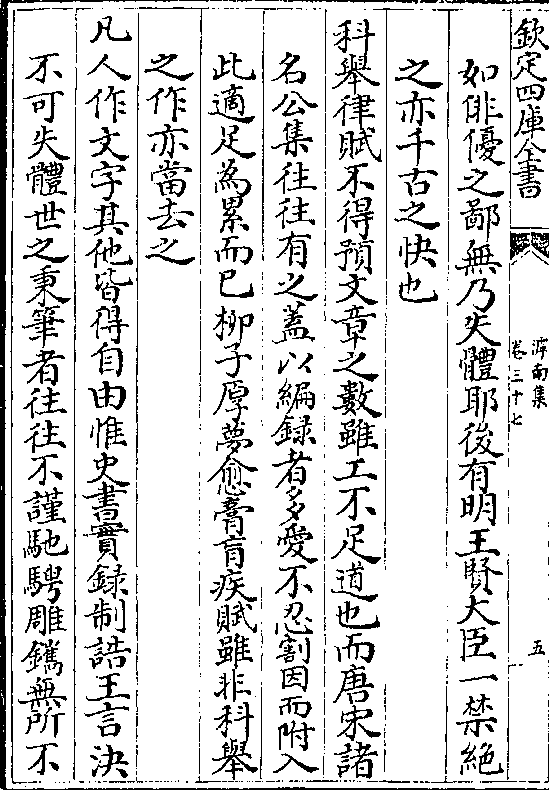 欽定四庫全書
滹南集
卷三十七
五
如俳優之鄙無乃失體耶後有明王賢大臣一禁絶
之亦千古之快也
科舉律賦不得預文章之數雖工不足道也而唐宋諸
名公集往往有之蓋以編録者多愛不忍割因而附入
此適足為累而已柳子厚夢愈膏肓疾賦雖非科舉
之作亦當去之
凡人作文字其他皆得自由惟史書實録制誥王言決
不可失體世之秉筆者往往不謹馳騁雕鐫無所不